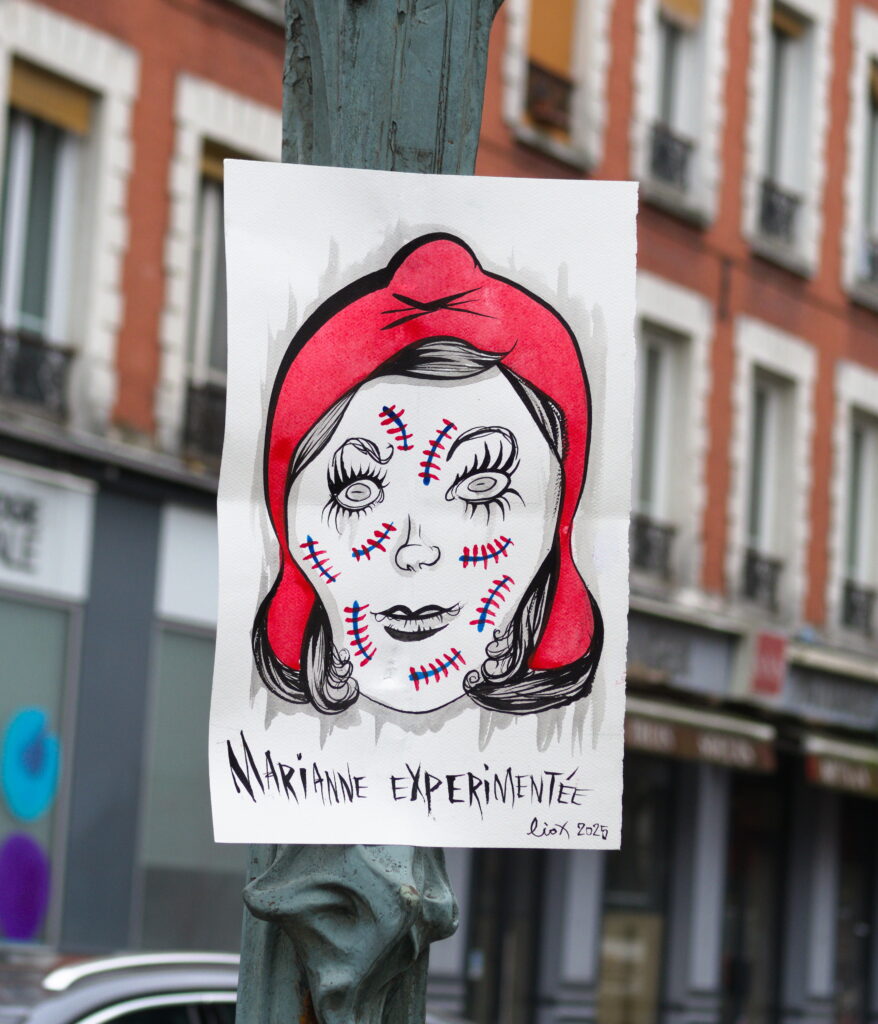 MARIANNE EXPERIMENTÉE
liox 2025